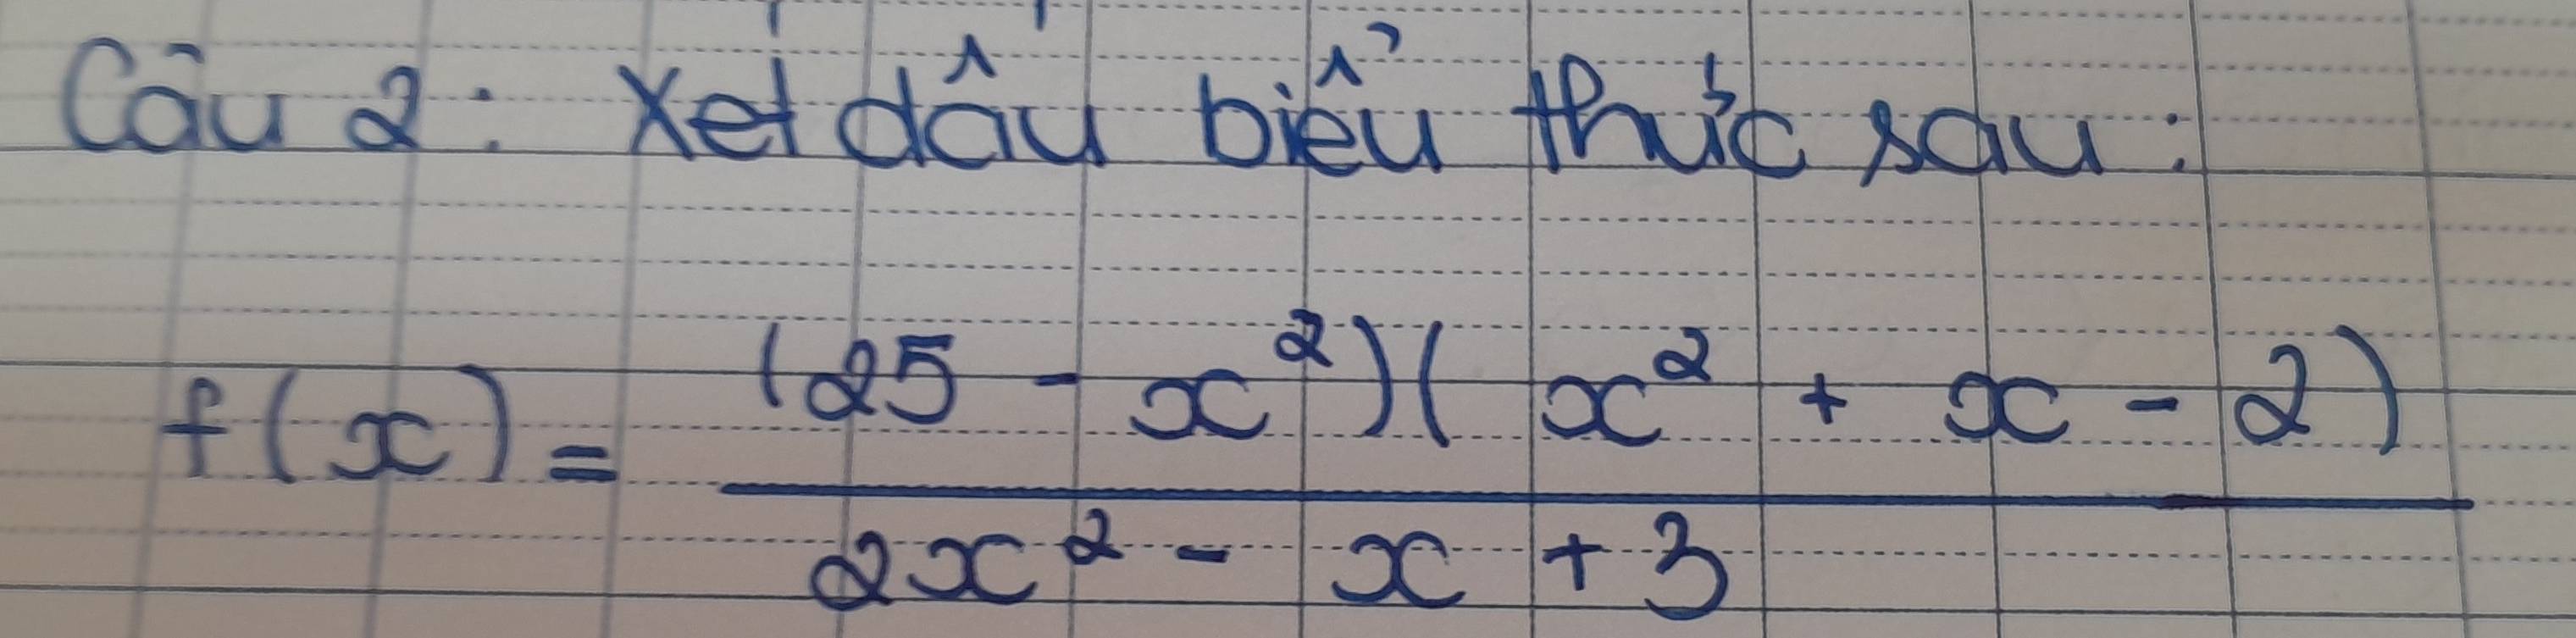 Câu 2: Xét dấu biểu thức sau:
f(x) = (25 - x²)(x² + x - 2)
2x² - x + 3